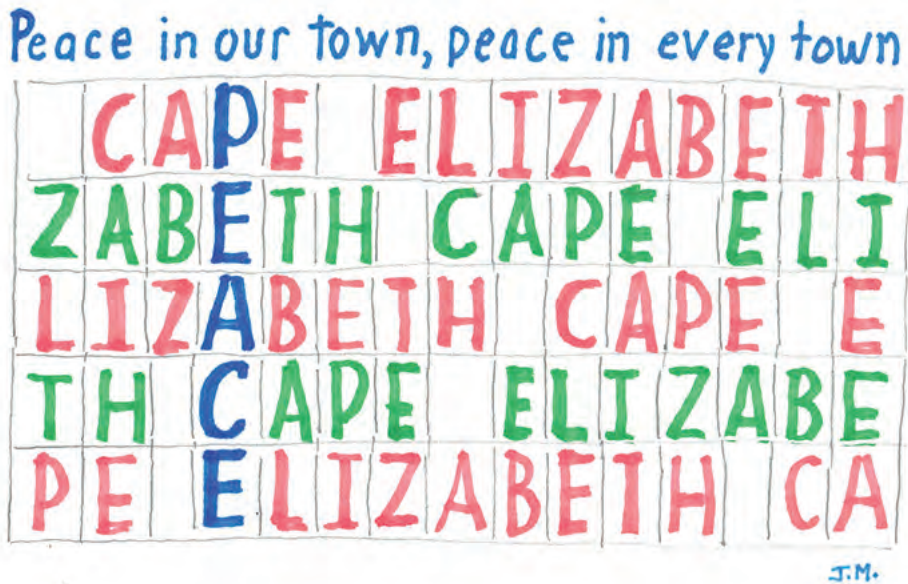 Peace in our town, peace in every town
CAPE ELIZABETH
ZABETH CAPE ELI
LIZABETH CAPE E
TH CAPE ELIZABE
PE ELIZABETH CA
J.M.